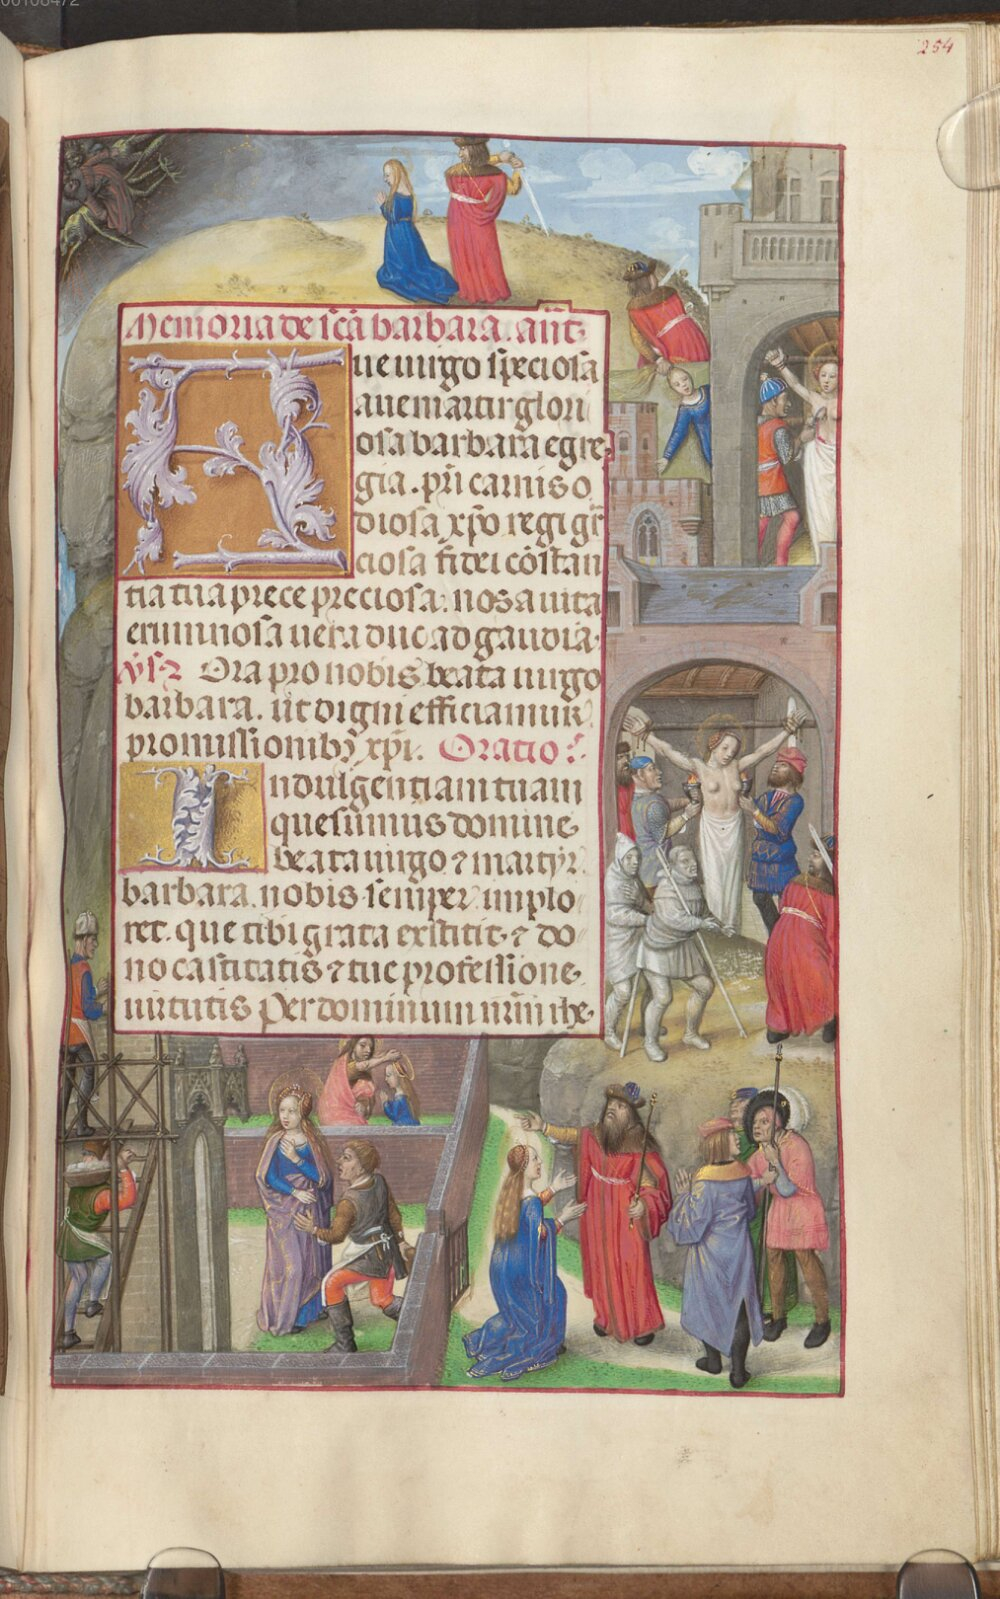 254
Memoria de sc̄a barbara. ant̄
Aue uirgo speciosa
aue martir glori
osa barbara egre
gia. pr̄i carnis o
diosa xp̄o regi gr̄
ciosa fidei cōstan
tia tua prece preciosa. nos a uita
erumnosa uera duc ad gaudia.
Ora pro nobis beata uirgo
barbara. ut digni efficiamur
promissionibꝫ xp̄i. Oratio
Indulgentiam tuam
quesumus domine
beata uirgo ⁊ martyr
barbara nobis semper implo
ret. que tibi grata exstitit. ⁊ do
no castitatis ⁊ tue professione
uirtutis Per dominum nr̄m ihe.